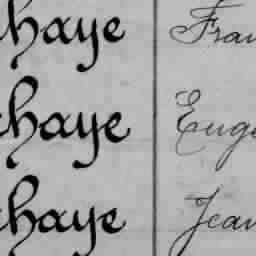 haye Fran
haye Euge
haye Jean